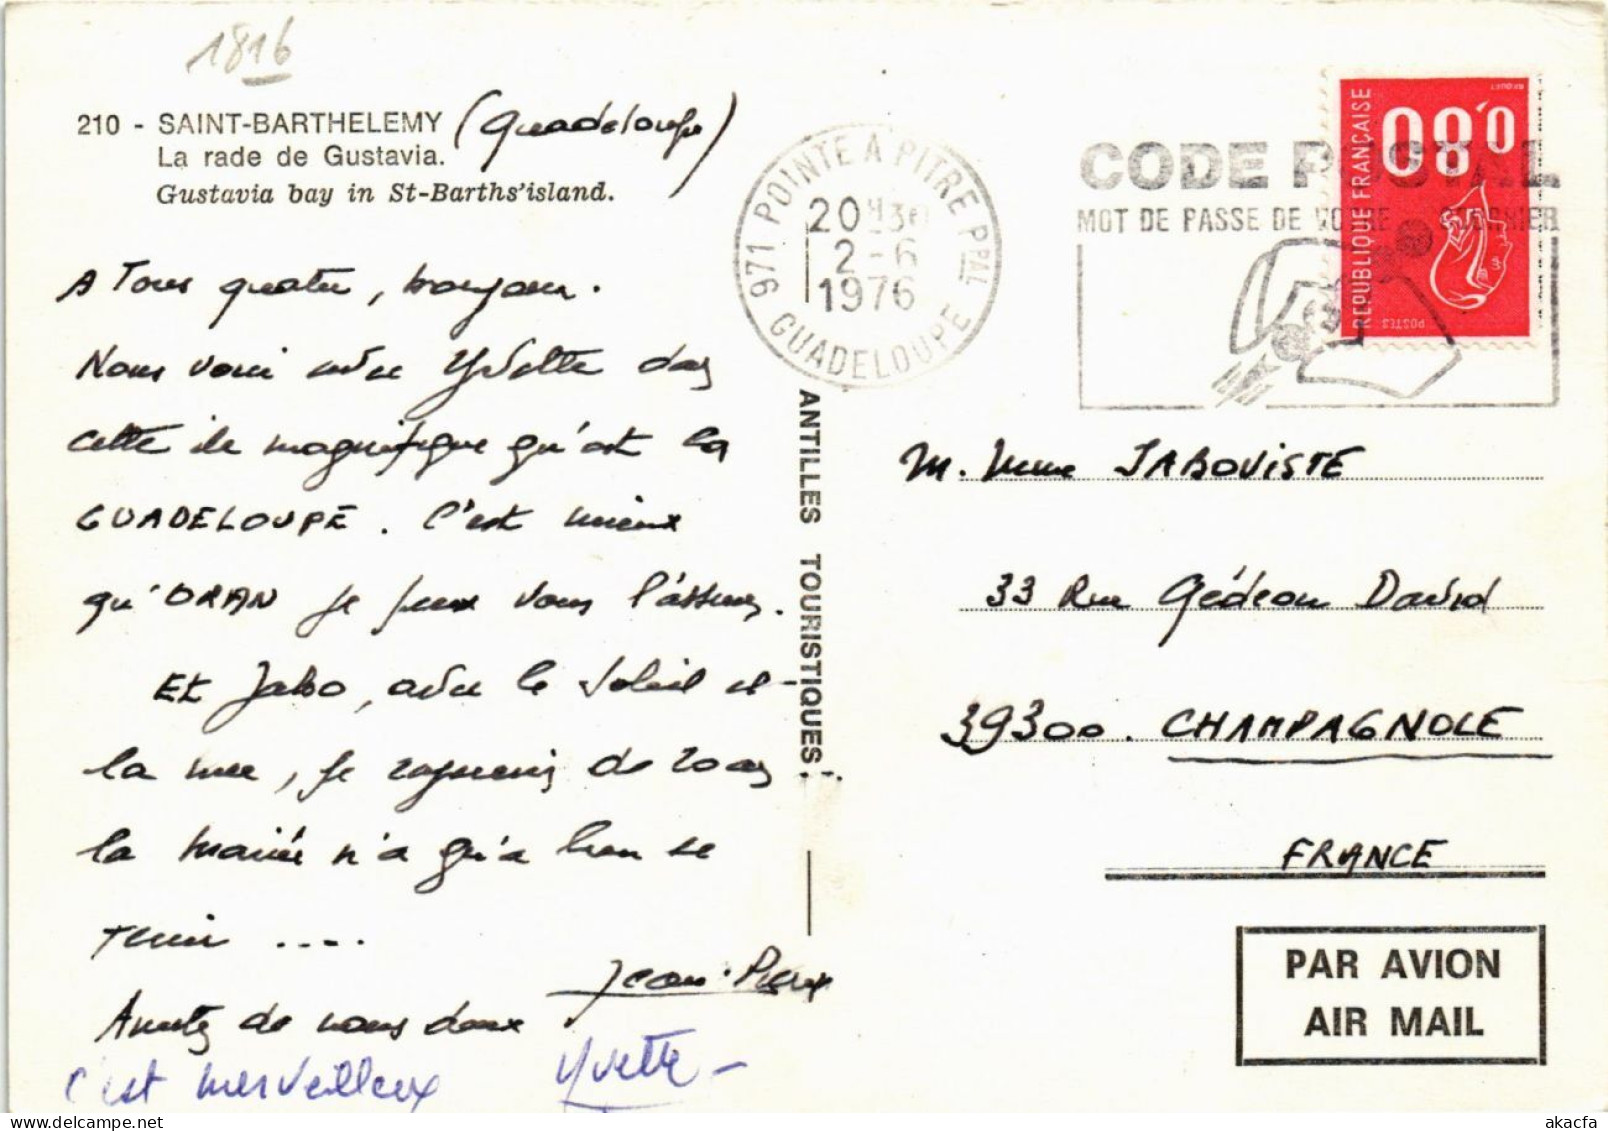 1816
210 - SAINT-BARTHELEMY (Guadeloupe)
La rade de Gustavia.
Gustavia bay in St-Barths'island.
A Tous quatre, bonjour.
Nous voici avec Yvette dans
cette ile magnifique qu'est la
GUADELOUPE. C'est mieux
qu'ORAN je peux vous l'assurer.
Et Jabo, avec le soleil et
la mer, je rajeunis de 20 ans
la mariée n'a qu'a bien se
tenir ....
Jean-Pierre
Amitiés de nous deux
c'est merveilleux Yvette
971 POINTE A PITRE PPAL
20H30
2-6
1976
GUADELOUPE
CODE POSTAL
MOT DE PASSE DE VOTRE COURRIER
REPUBLIQUE FRANÇAISE
0,80
POSTES
BEQUET
ANTILLES TOURISTIQUES
M. Mme JABOVISTE
33 Rue Gédéon David
39300. CHAMPAGNOLE
FRANCE
PAR AVION
AIR MAIL
akacfa